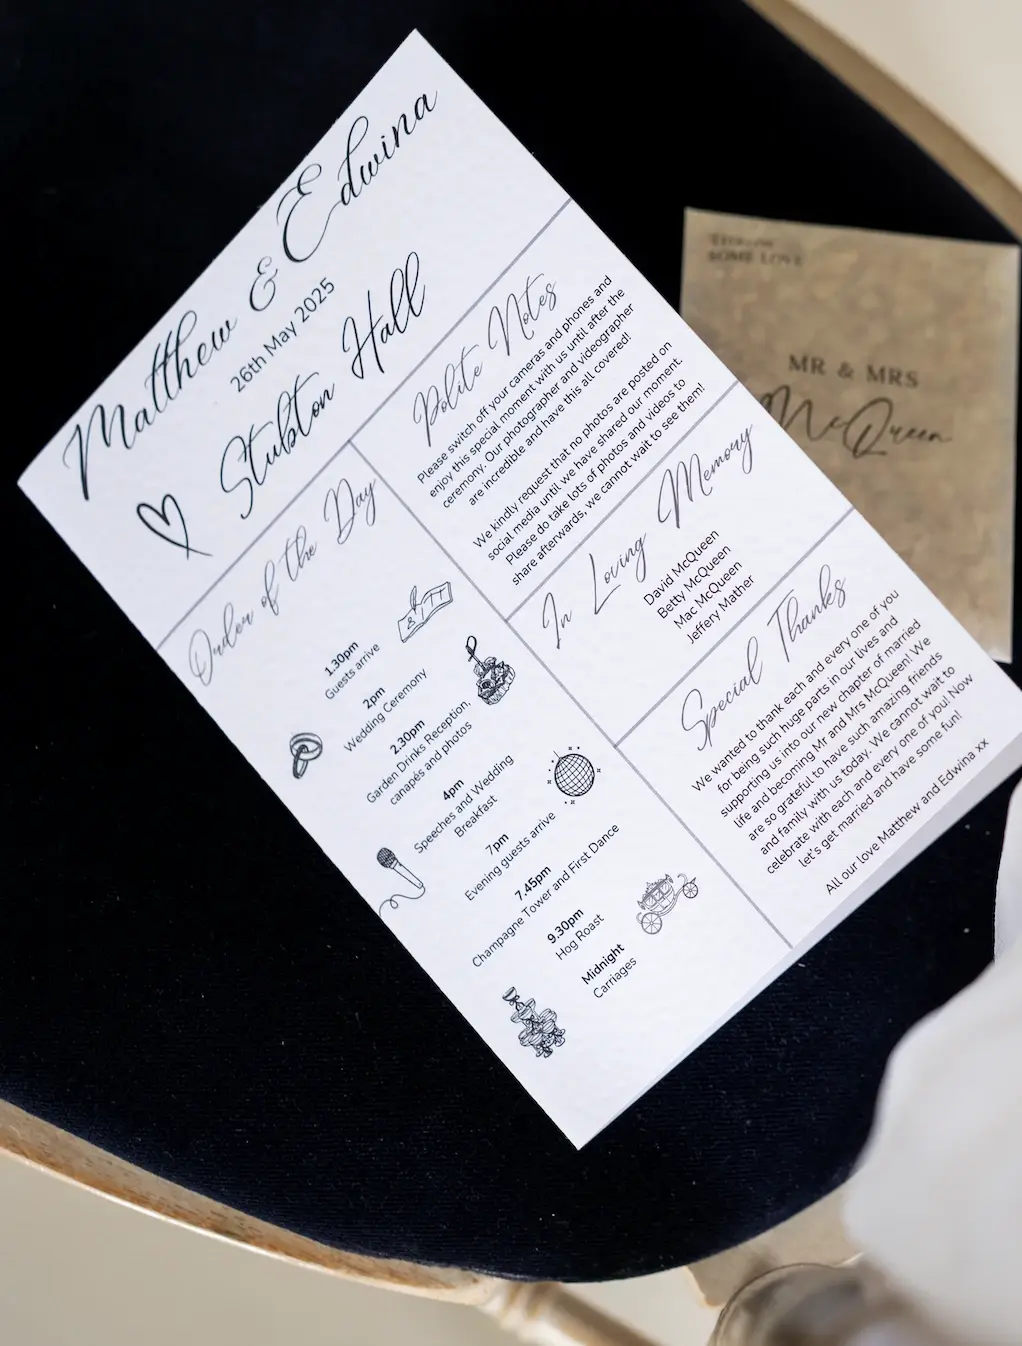 Matthew & Edwina
26th May 2025
Stubton Hall
Order of the Day
1.30pm
Guests arrive
2pm
Wedding Ceremony
2.30pm
Garden Drinks Reception,
canapés and photos
4pm
Speeches and Wedding
Breakfast
7pm
Evening guests arrive
7.45pm
Champagne Tower and First Dance
9.30pm
Hog Roast
Midnight
Carriages
Polite Notes
Please switch off your cameras and phones and
enjoy this special moment with us until after the
ceremony. Our photographer and videographer
are incredible and have this all covered!
We kindly request that no photos are posted on
social media until we have shared our moment.
Please do take lots of photos and videos to
share afterwards, we cannot wait to see them!
In Loving Memory
David McQueen
Betty McQueen
Mac McQueen
Jeffery Mather
Special Thanks
We wanted to thank each and every one of you
for being such huge parts in our lives and
supporting us into our new chapter of married
life and becoming Mr and Mrs McQueen! We
are so grateful to have such amazing friends
and family with us today. We cannot wait to
celebrate with each and every one of you! Now
let's get married and have some fun!
All our love Matthew and Edwina xx
SOME LOVE
MR & MRS
McQueen